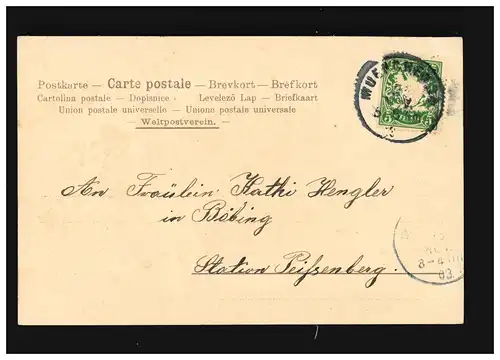 Postkarte — Carte postale — Brevkort — Brefkort
Cartolina postale — Dopisnice · Levelező Lap — Briefkaart
Union postale universelle — Unione postale universale
— Weltpostverein. —
MUENCHEN
5 5
03
An Fräulein Kathi Hengler
in Böbing
Station Peißenberg.
8-9
03